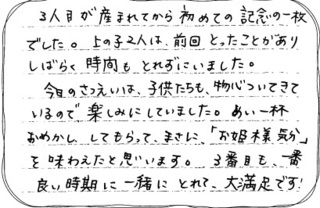 3人目が産まれてから初めての記念の一枚
でした。上の子2人は、前回とったことがあり
しばらく時間もとれずにいました。
今日のさつえいは、子供たちも、物心ついてきて
いるので楽しみにしていました。めいー杯
おめかし、してもらって、まさに、「お姫様気分」
を味わえたと思います。3番目も、一番
良い時期に一緒にとれて、大満足です!